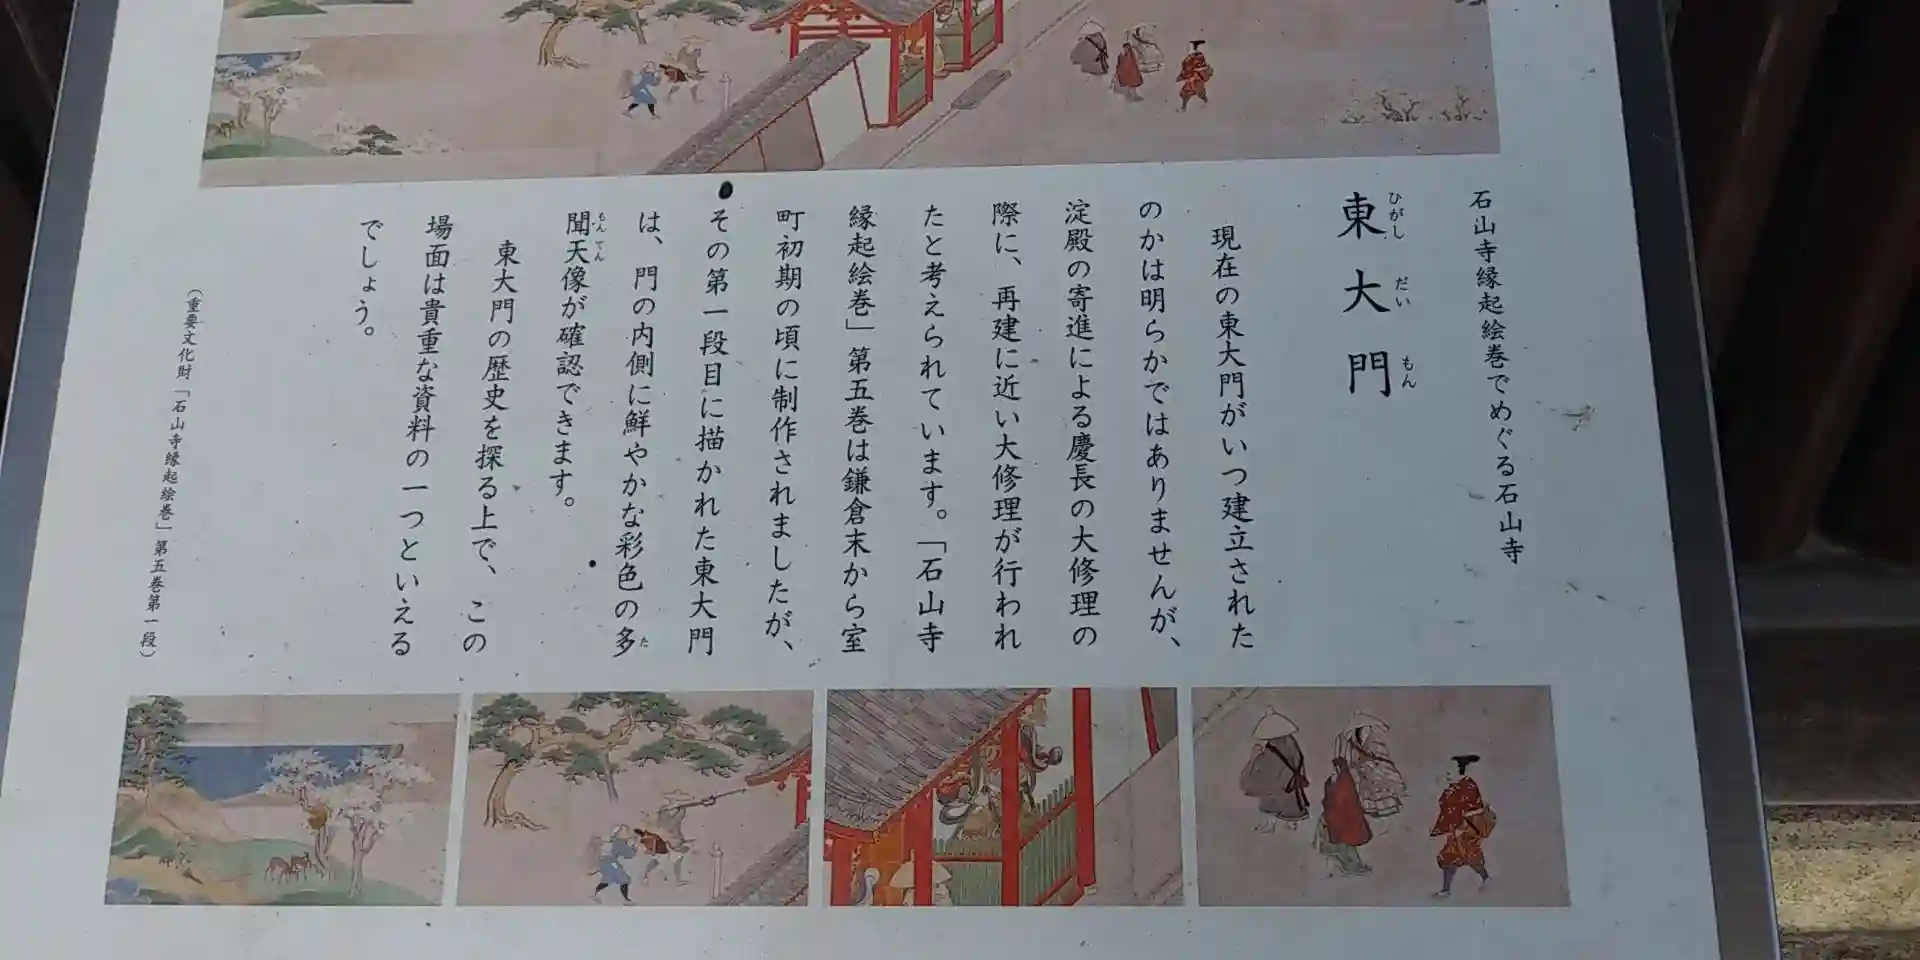 石山寺縁起絵巻でめぐる石山寺
東大門
ひがしだいもん
現在の東大門がいつ建立された
のかは明らかではありませんが、
淀殿の寄進による慶長の大修理の
際に、再建に近い大修理が行われ
たと考えられています。「石山寺
縁起絵巻」第五巻は鎌倉末から室
町初期の頃に制作されましたが、
その第一段目に描かれた東大門
は、門の内側に鮮やかな彩色の多
た
聞天像が確認できます。
もんてん
東大門の歴史を探る上で、この
場面は貴重な資料の一つといえる
でしょう。
（重要文化財「石山寺縁起絵巻」第五巻第一段）